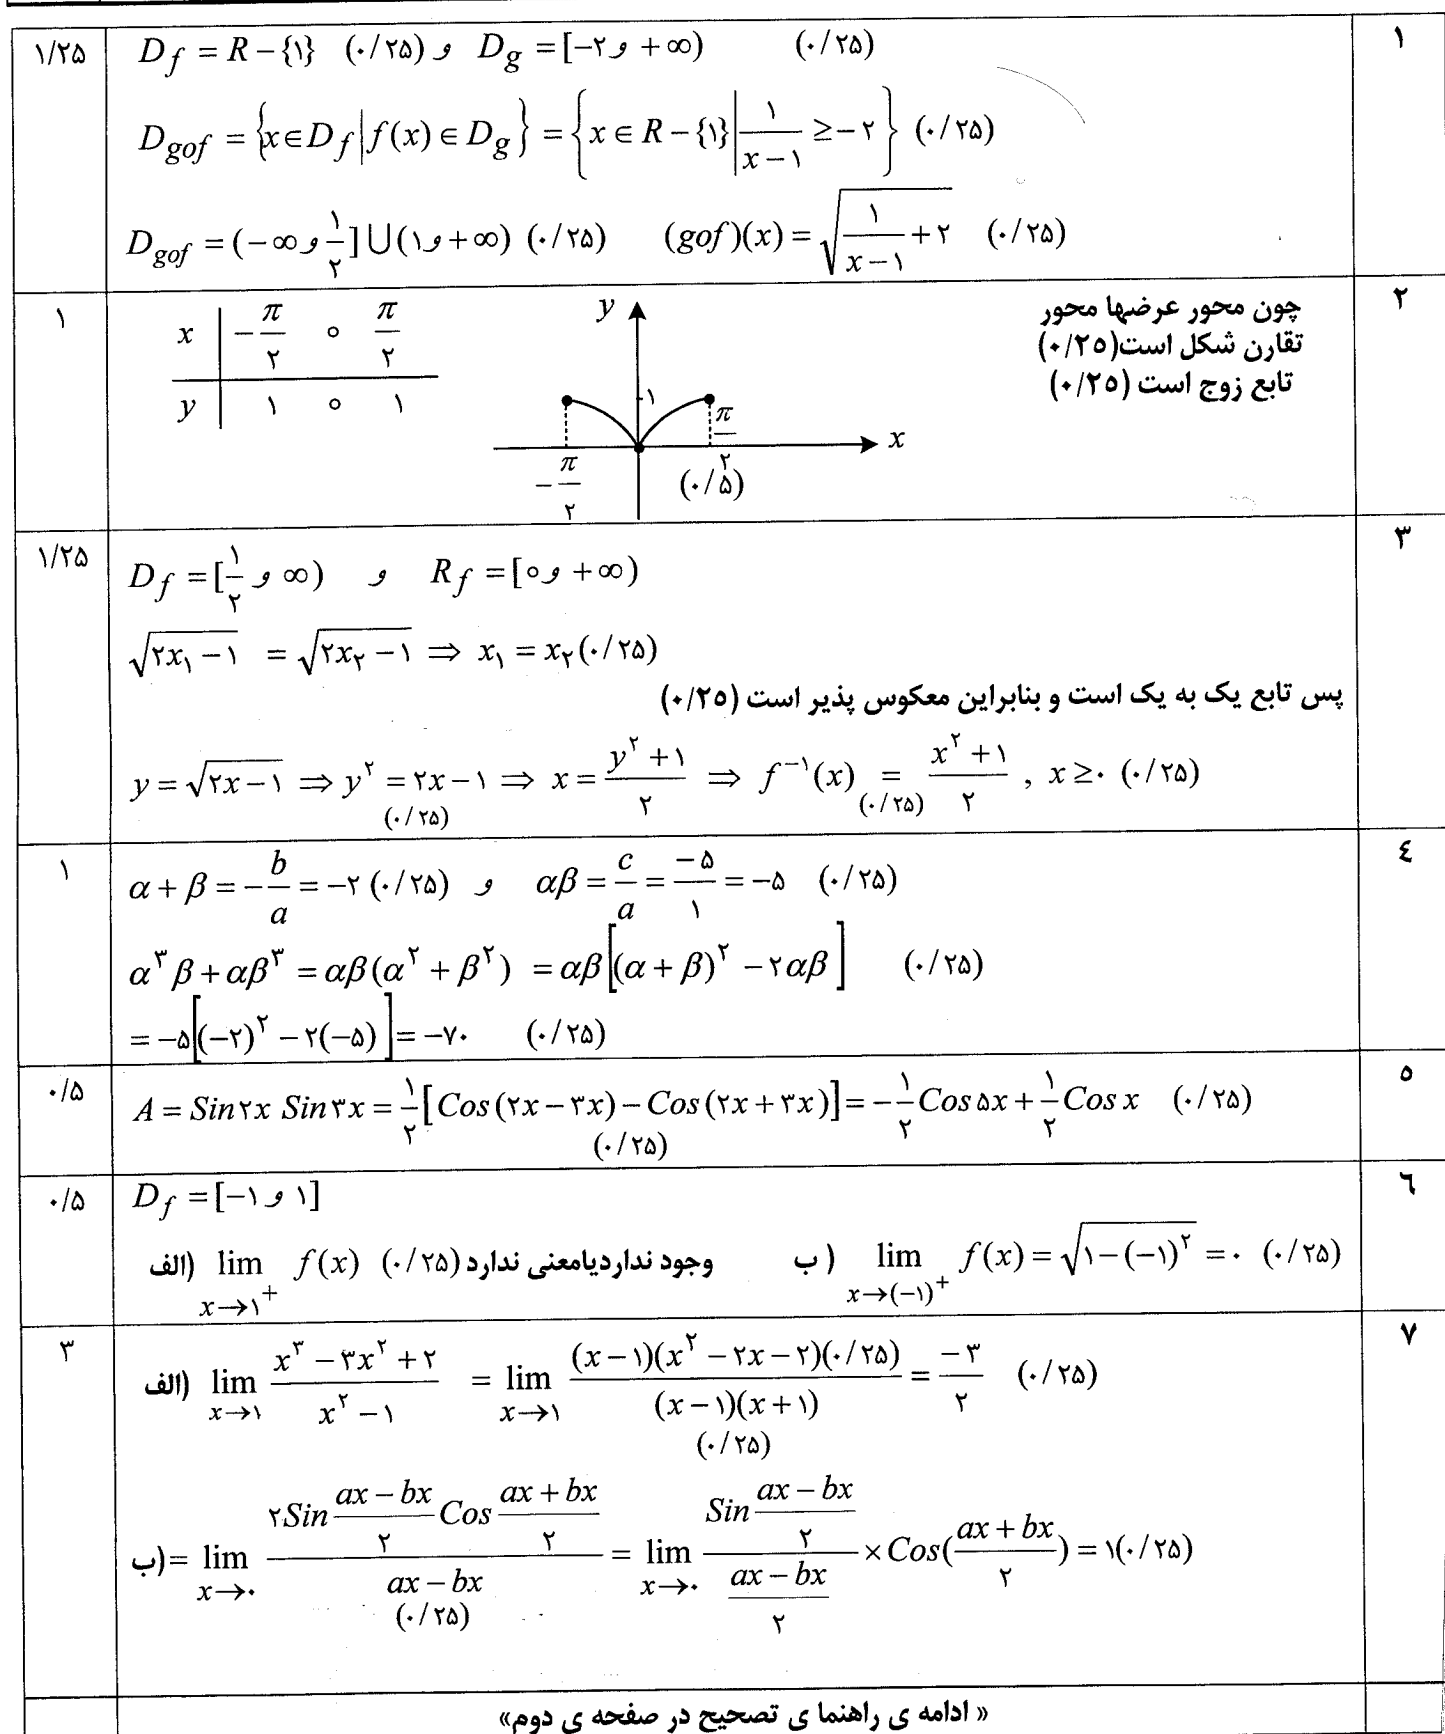 ۱
D_f = R − {۱} (۰/۲۵) و D_g = [−۲ و +∞) (۰/۲۵)
۱/۲۵
D_gof = {x ∈ D_f | f(x) ∈ D_g} = {x ∈ R − {۱} | ۱/(x−۱) ≥ −۲} (۰/۲۵)
D_gof = (−∞ و ۱/۲] ∪ (۱ و +∞) (۰/۲۵) (gof)(x) = √(۱/(x−۱) + ۲) (۰/۲۵)
۲
چون محور عرضها محور
تقارن شکل است(۰/۲۵)
تابع زوج است (۰/۲۵)
۱
x | −π/۲ ۰ π/۲
y | ۱ ۰ ۱
y
۱
π/۲
x
−π/۲
(۰/۵)
۳
۱/۲۵
D_f = [۱/۲ و ∞) و R_f = [۰ و +∞)
√(۲x₁ − ۱) = √(۲x₂ − ۱) ⇒ x₁ = x₂ (۰/۲۵)
پس تابع یک به یک است و بنابراین معکوس پذیر است (۰/۲۵)
y = √(۲x − ۱) ⇒ y² = ۲x − ۱ ⇒ x = (y² + ۱)/۲ ⇒ f⁻¹(x) = (x² + ۱)/۲ , x ≥ ۰ (۰/۲۵)
(۰/۲۵) (۰/۲۵)
۴
۱
α + β = −b/a = −۲ (۰/۲۵) و αβ = c/a = −۵/۱ = −۵ (۰/۲۵)
α³β + αβ³ = αβ(α² + β²) = αβ[(α + β)² − ۲αβ] (۰/۲۵)
= −۵[(−۲)² − ۲(−۵)] = −۷۰ (۰/۲۵)
۵
۰/۵
A = Sin۲x Sin۳x = ۱/۲[Cos(۲x − ۳x) − Cos(۲x + ۳x)] = −۱/۲Cos۵x + ۱/۲Cosx (۰/۲۵)
(۰/۲۵)
۶
۰/۵
D_f = [−۱ و ۱]
الف) lim x→۱⁺ f(x) (۰/۲۵) وجود نداردیامعنی ندارد ب) lim x→(−۱)⁺ f(x) = √(۱ − (−۱)²) = ۰ (۰/۲۵)
۷
۳
الف) lim x→۱ (x³ − ۳x² + ۲)/(x² − ۱) = lim x→۱ (x−۱)(x² − ۲x − ۲)(۰/۲۵)/((x−۱)(x+۱)) = −۳/۲ (۰/۲۵)
(۰/۲۵)
ب) = lim x→۰ (۲Sin((ax−bx)/۲) Cos((ax+bx)/۲))/(ax−bx) = lim x→۰ (Sin((ax−bx)/۲))/((ax−bx)/۲) × Cos((ax+bx)/۲) = ۱ (۰/۲۵)
(۰/۲۵)
« ادامه ی راهنما ی تصحیح در صفحه ی دوم»